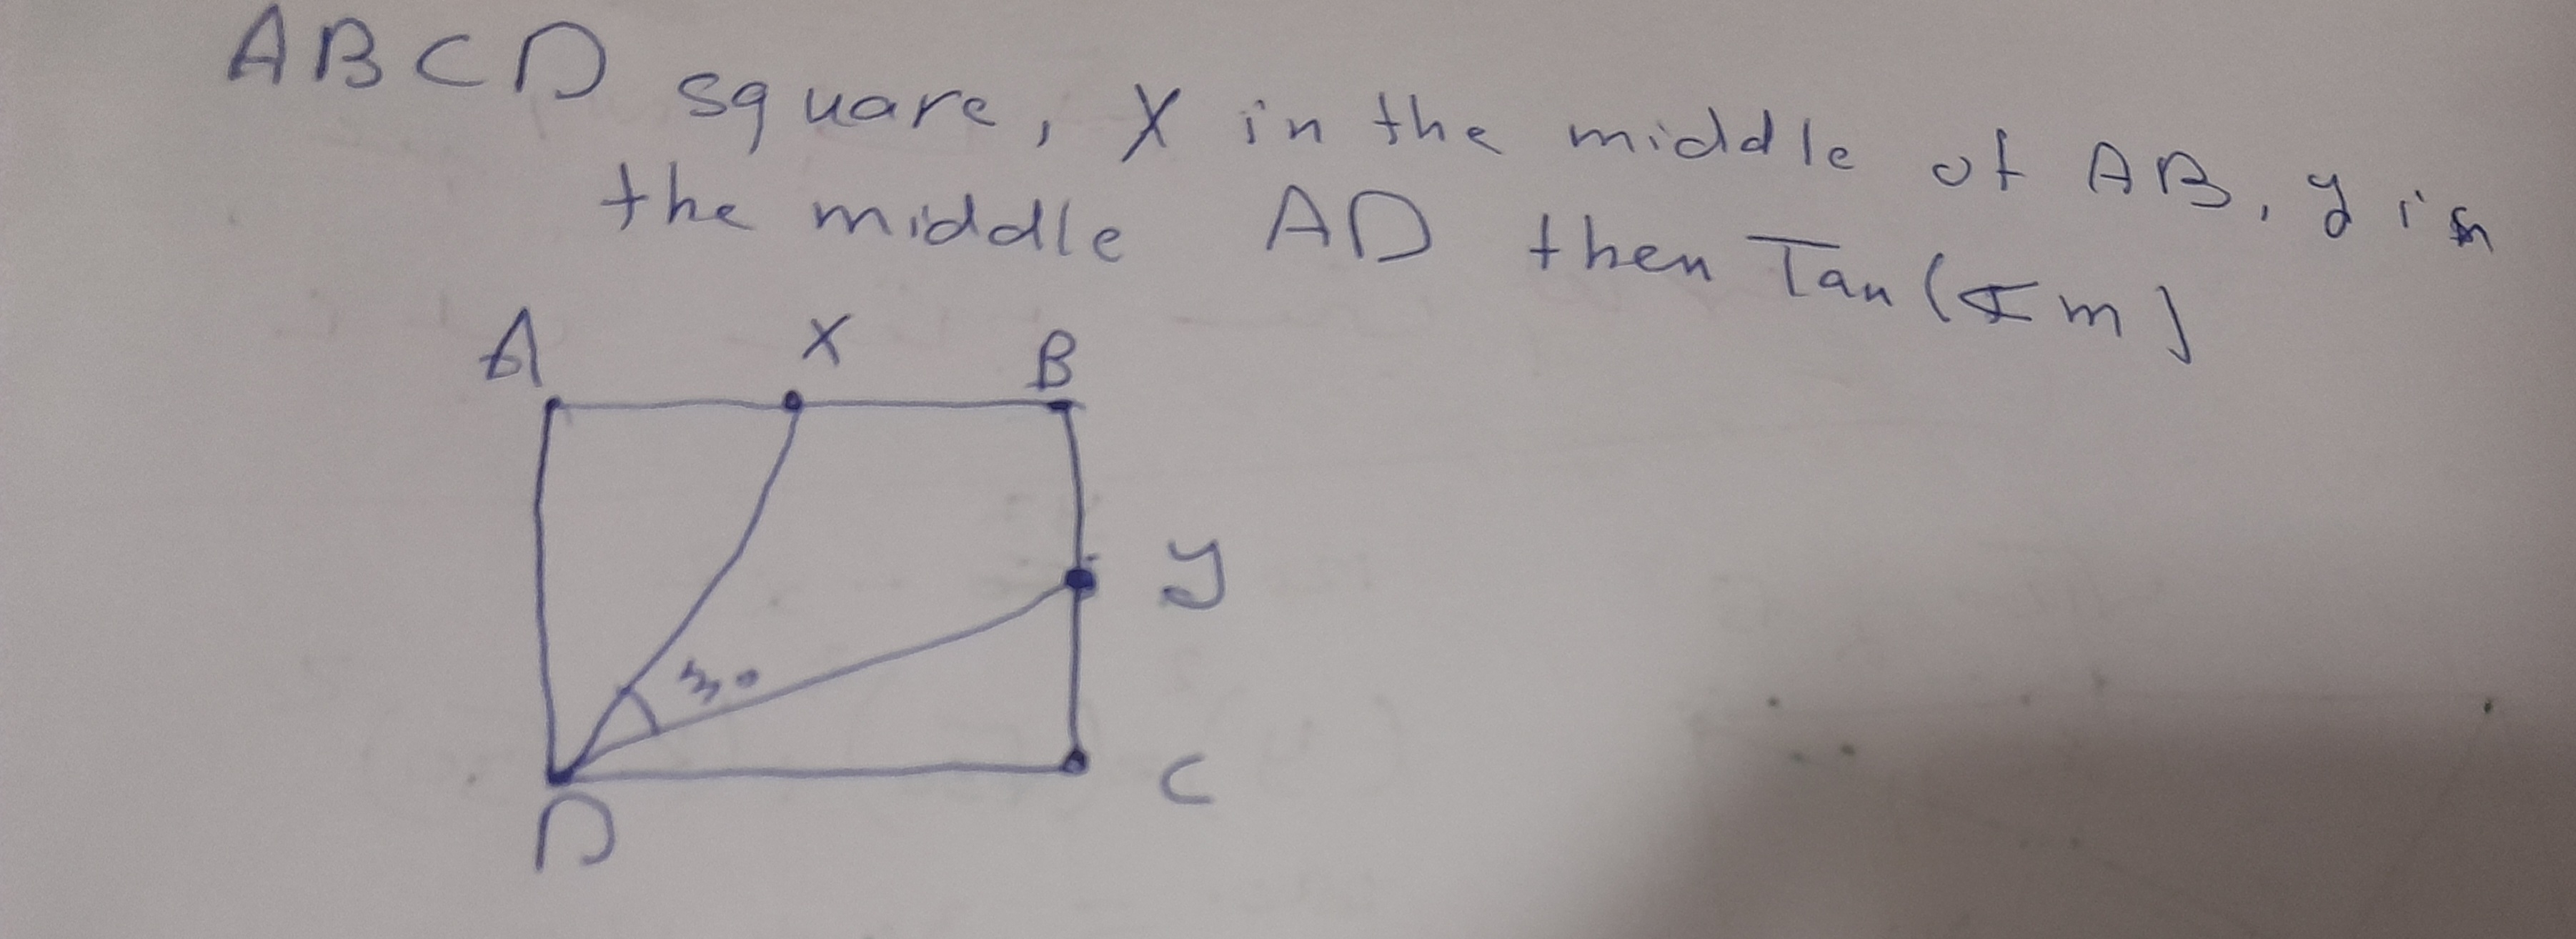 ABCD square, X in the middle of AB, y in
the middle AD then Tan(∡m)
A X B
y
m
D C